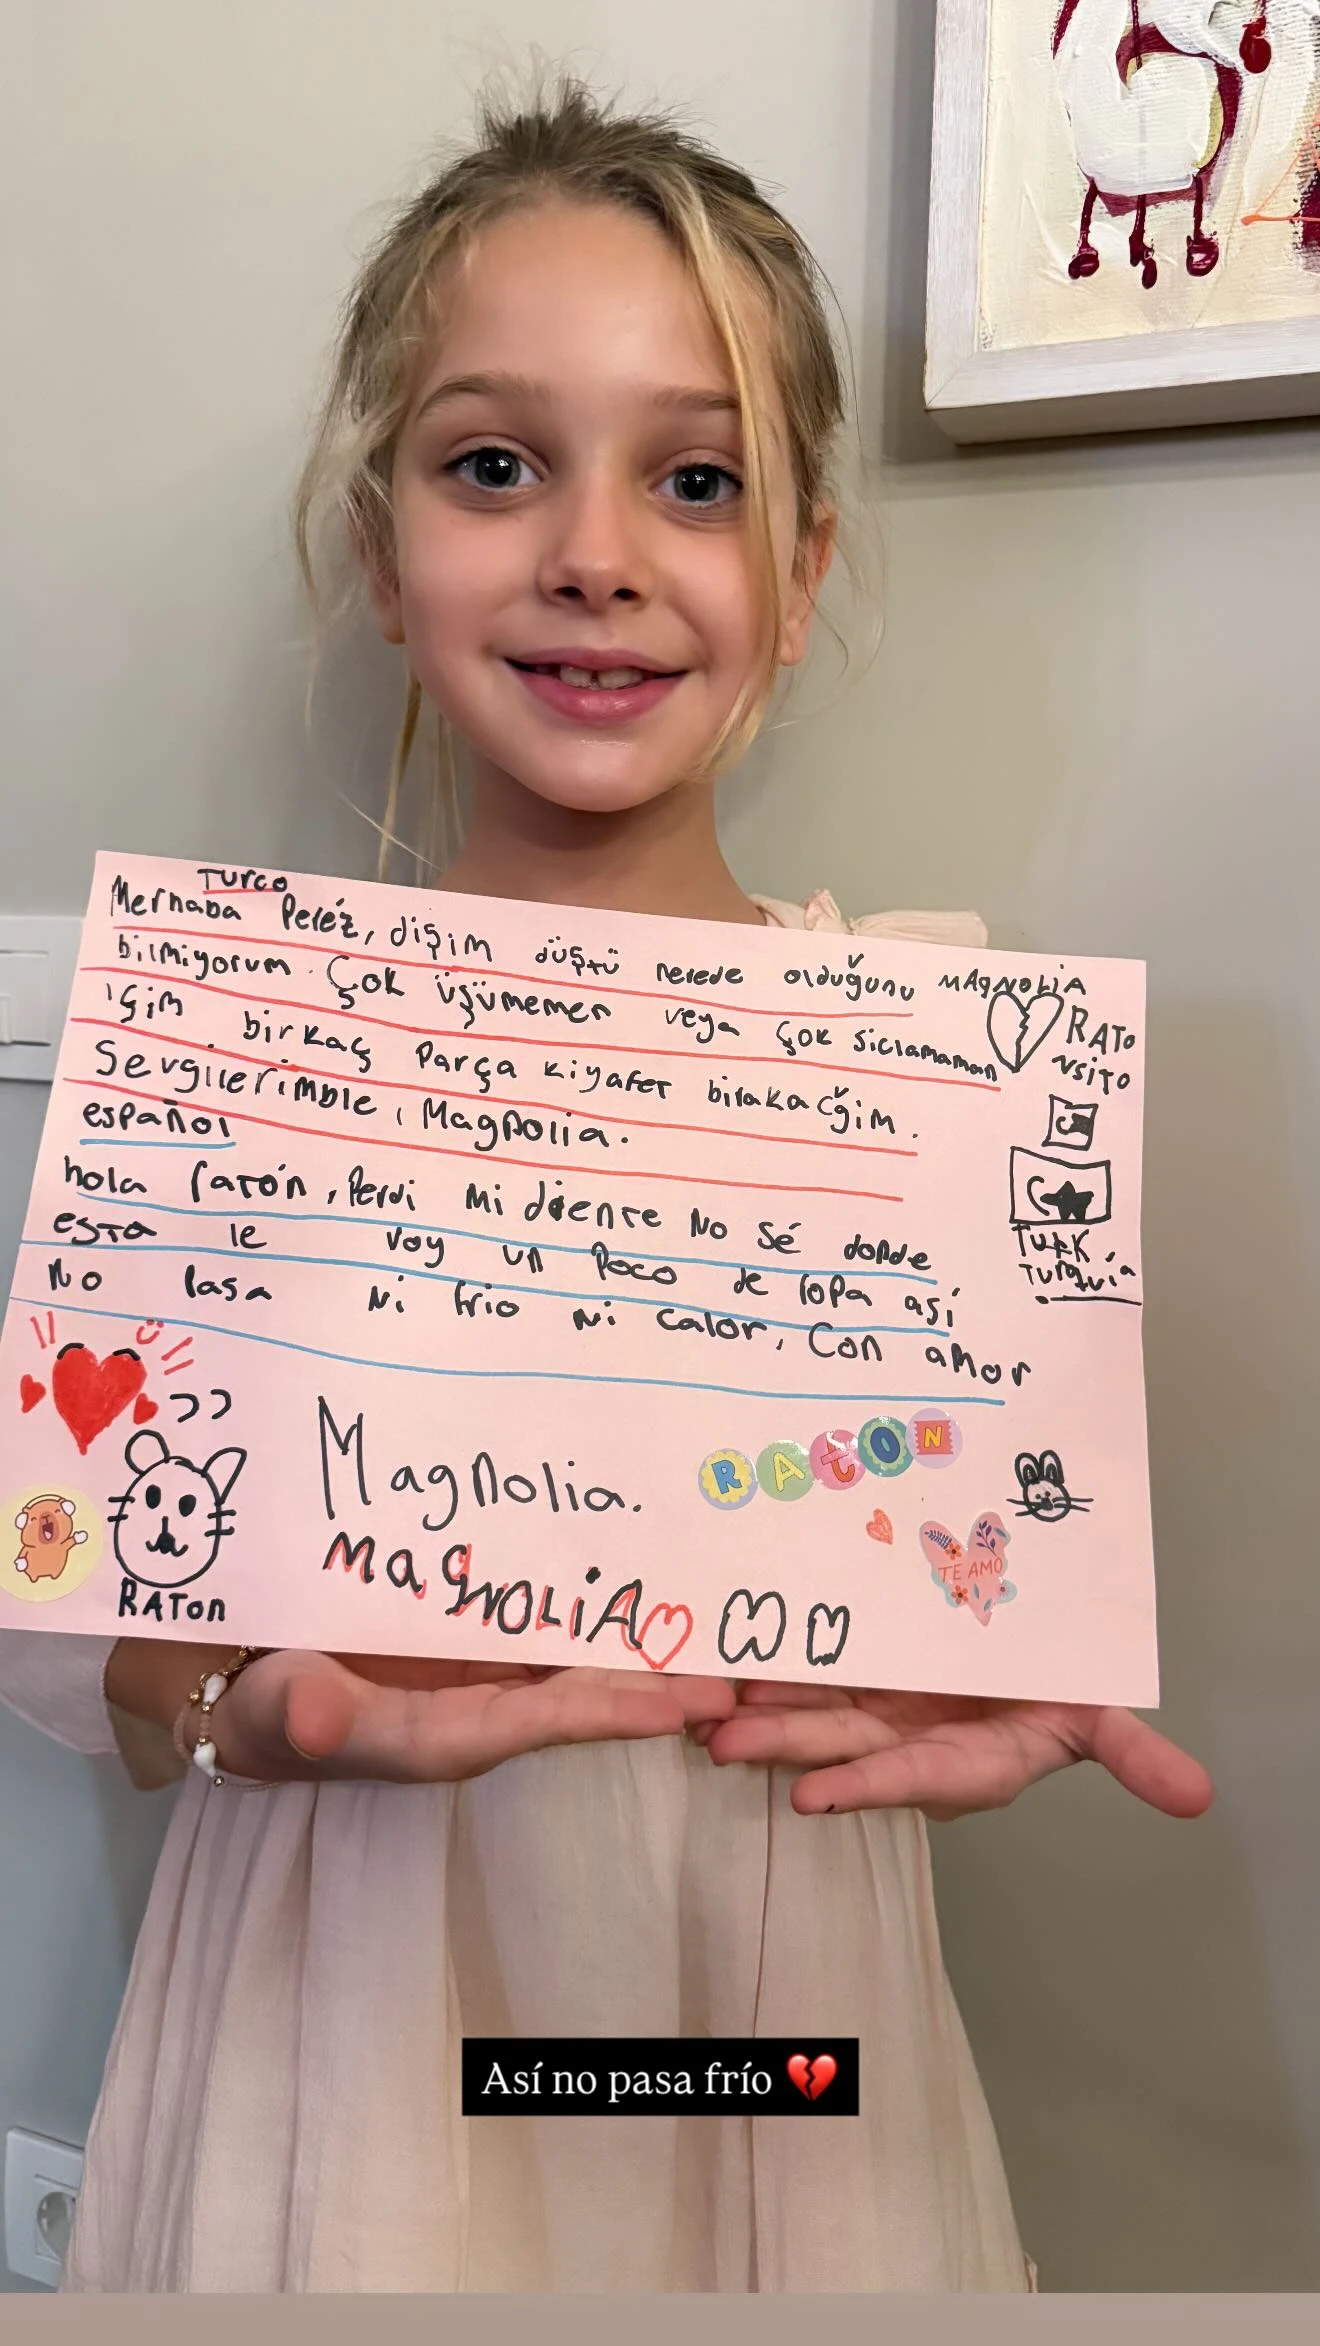 Turco
Merhaba Peréz, dişim düştü nerede olduğunu
bilmiyorum. Çok üşümemen veya çok siclamaman
için birkaç parça kiyafet birakacğim.
Sevgilerimble, Magnolia.
MAGNOLIA
RATO
NSITO
TURK
Turquía
español
hola ratón, Perdi mi diente No sé donde
esta le voy un poco de ropa así
No pasa Ni frio Ni calor, Con amor
Magnolia.
RATON
MagNOLiA
RATON
TE AMO
Así no pasa frío 💔